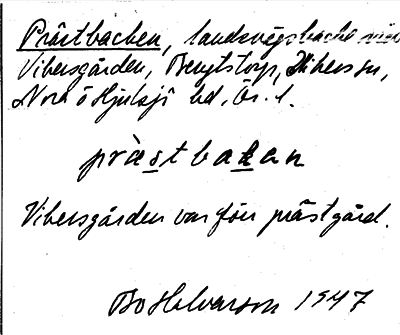 Prästbacken, landsvägsbacke vid
Vibersgården, Bengtstorp, Vibers sn,
Nora o Hjulsjö bd, Ör. l.
prästbakan
Vibersgården var förr prästgård.
Bo Halvarson 1947